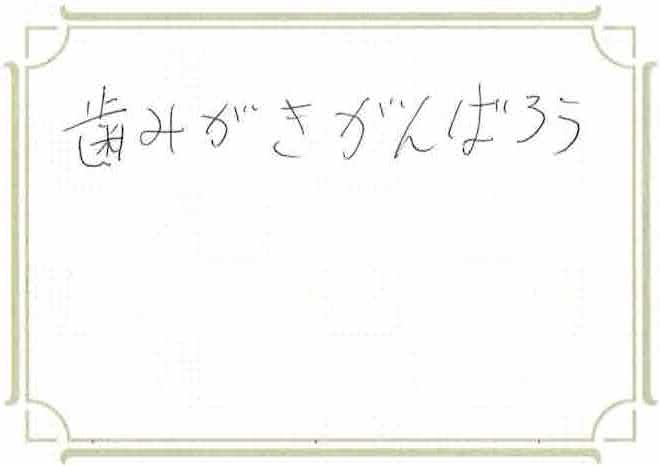 歯みがきがんばろう